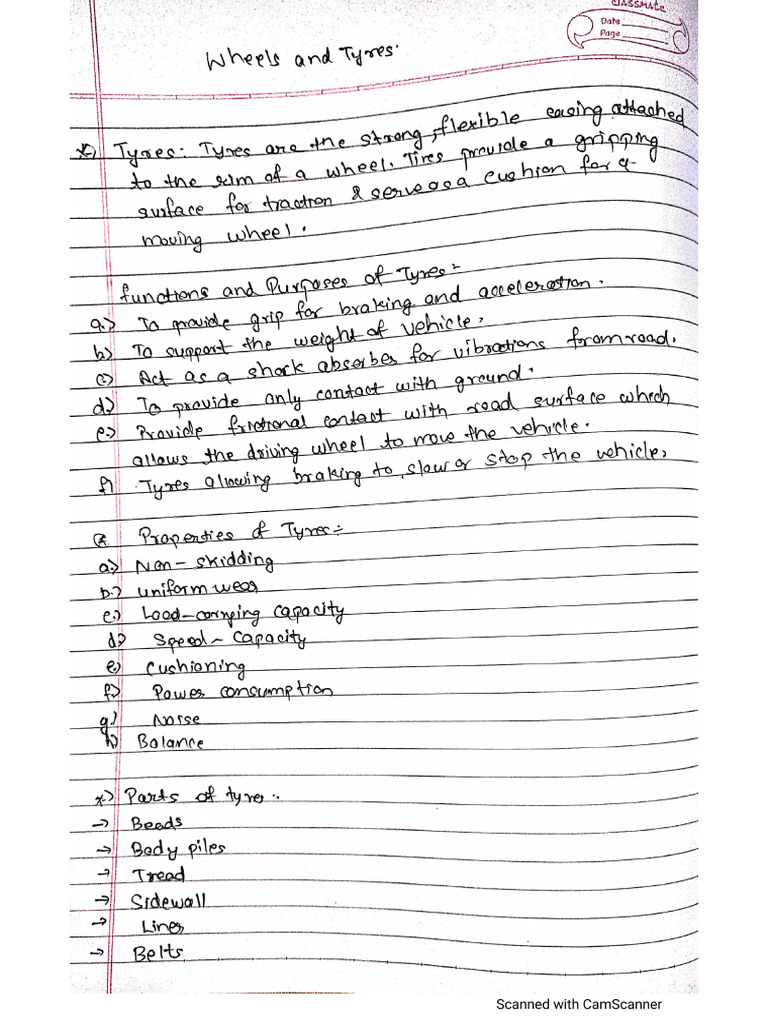 classmate
Date
Page
Wheels and Tyres.
*) Tyres: Tyres are the strong, flexible casing attached
to the rim of a wheel. Tires provide a gripping
surface for traction & serve as a cushion for a
moving wheel.
functions and Purposes of Tyres:-
a.) To provide grip for braking and acceleration.
b) To support the weight of vehicle.
c) Act as a shock absorber for vibrations from road.
d) To provide only contact with ground.
e.) Provide frictional contact with road surface which
allows the driving wheel to move the vehicle.
f) Tyres allowing braking to slow or stop the vehicle.
* Properties of Tyres:-
a.) Non-skidding
b.) uniform wear
c.) Load-carrying capacity
d) Speed-capacity
e.) Cushioning
f.) Power consumption
g.) Noise
h) Balance
*) Parts of tyres:-
→ Beads
→ Body piles
→ Tread
→ Sidewall
→ Liner
→ Belts
Scanned with CamScanner